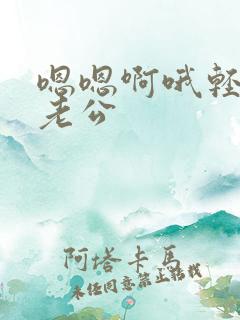 嗯嗯啊哦轻
老公
阿塔卡马
未经同意禁止转载